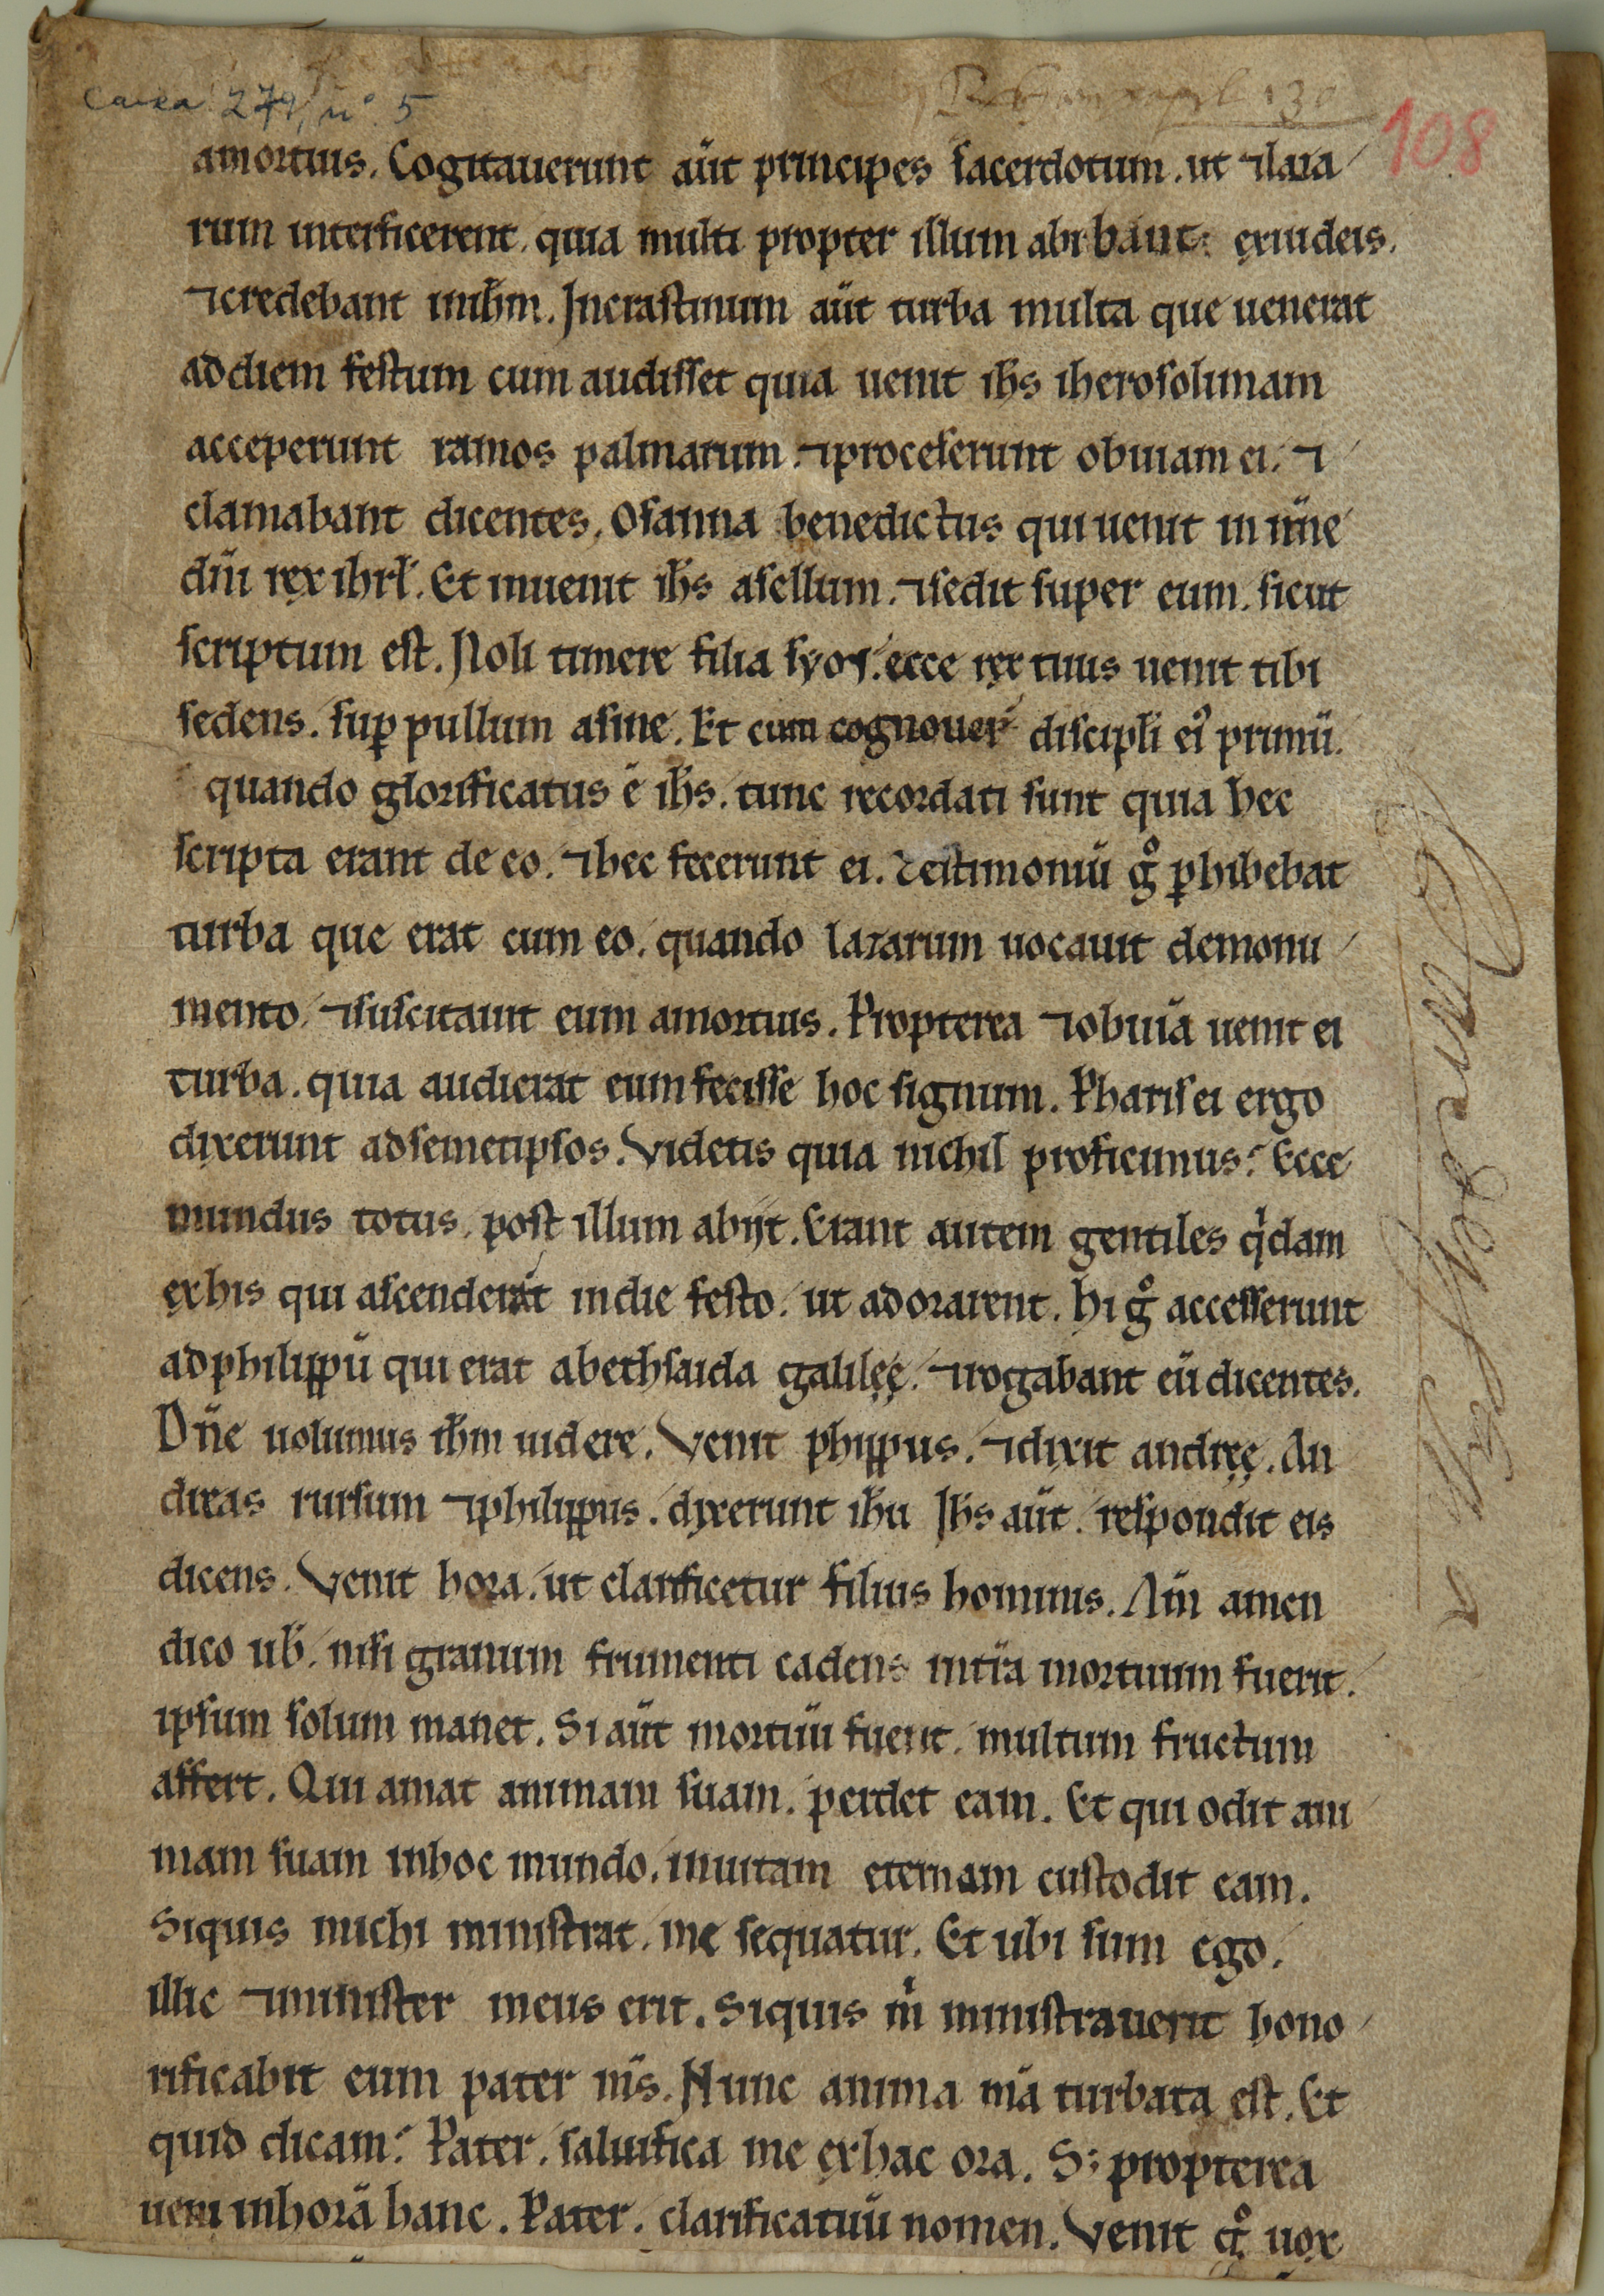 Caixa 279, nº 5
108
amortuis. Cogitauerunt aūt principes sacerdotum. ut ⁊laza
rum interficerent. quia multi propter illum abibant: exiudeis.
⁊credebant inihm̄. Incrastinum aūt turba multa que uenerat
addiem festum cum audisset quia uenit ih̄s iherosolimam
acceperunt ramos palmarum. ⁊proceserunt obuiam ei. ⁊
clamabant dicentes. Osanna benedictus qui uenit in nn̄e
dn̄i rex ihrl̄. Et inuenit ih̄s asellum. ⁊sedit super eum. sicut
scriptum est. Noli timere filia syon. ecce rex tuus uenit tibi
sedens. suꝑ pullum asine. Et cum cognouer̄ discipl̄i ei᷒ primū.
quando glorificatus ē ih̄s. tunc recordati sunt quia hec
scripta erant de eo. ⁊hec fecerunt ei. Testimoniū gͦ ꝑhibebat
turba que erat cum eo. quando lazarum uocauit demonu
mento. ⁊suscitauit eum amortuis. Propterea ⁊obuiā uenit ei
turba. quia audierat eum fecisse hoc signum. Pharisei ergo
dixerunt adsemetipsos. Videtis quia nichil proficimus? Ecce
mundus totus. post illum abiit. Erant autem gentiles qͥdam
exhis qui ascenderāt indie festo. ut adorarent. hi gͦ accesserunt
adphilippū qui erat abethsaida galileę. ⁊rogabant eū dicentes.
Dn̄e uolumus ihm̄ uidere. Venit phippus. ⁊dixit andreę. An
dreas rursum ⁊philippus. dixerunt ih̄u Ih̄s aūt. respondit eis
dicens. Venit hora. ut clarificetur filius hominis. Am̄ amen
dico ub̄. nisi granum frumenti cadens intr̄a mortuum fuerit.
ipsum solum manet. Si aūt mortuū fuerit. multum fructum
affert. Qui amat animam suam. perdet eam. Et qui odit ani
mam suam inhoc mundo. inuitam eternam custodit eam.
Siquis michi ministrat. me sequatur. Et ubi sum ego.
illic ⁊minister meus erit. Siquis mͥ ministrauerit hono
rificabit eum pater m̄s. Nunc anima m̄a turbata est. Et
quid dicam? Pater. saluifica me exhac ora. S; propterea
ueni inhorā hanc. Pater. clarificatuū nomen. Venit gͦ uox